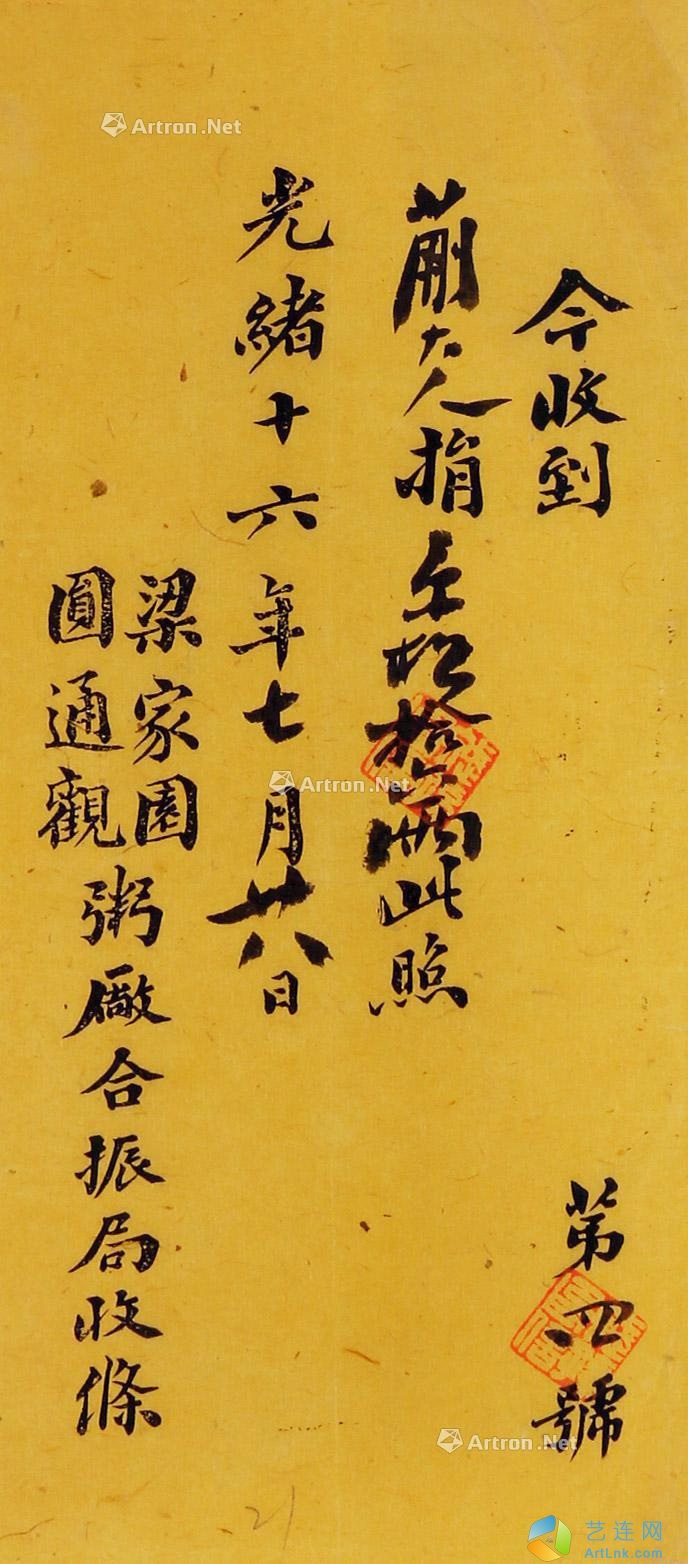 今收到
第四號
蒯大人捐松拾兩此照
光緒十六年七月廿八日
梁家園
圓通觀
粥廠合振局收條
Artron.Net
Artron.Net
Artron.Net
艺连网
ArtLnk.com